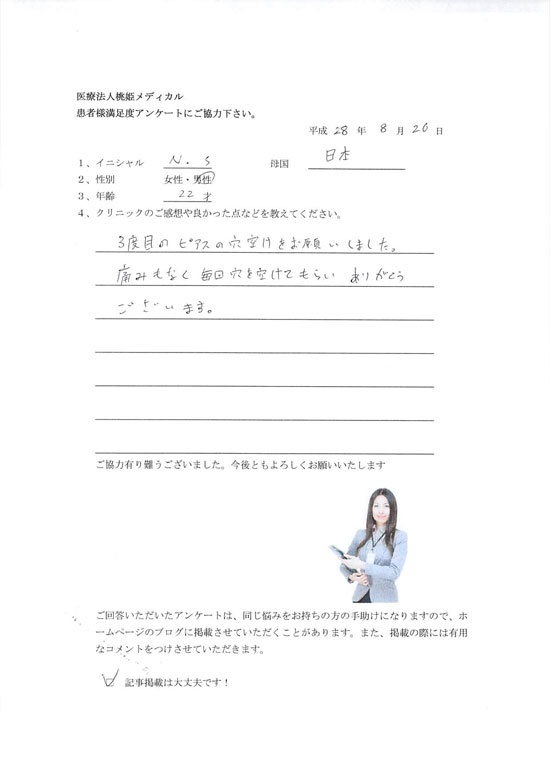 医療法人桃姫メディカル
患者様満足度アンケートにご協力下さい。
平成 28 年 8 月 20 日
1、イニシャル N.S 母国 日本
2、性別 女性・男性
3、年齢 22 才
4、クリニックのご感想や良かった点などを教えてください。
3度目のピアスの穴空けをお願いしました。
痛みもなく毎回穴を空けてもらい ありがとう
ございます。
ご協力有り難うございました。今後ともよろしくお願いいたします
ご回答いただいたアンケートは、同じ悩みをお持ちの方の手助けになりますので、ホ
ームページのブログに掲載させていただくことがあります。また、掲載の際には有用
なコメントをつけさせていただきます。
記事掲載は大丈夫です！